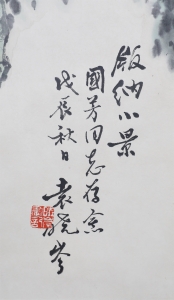 版纳小景
國芳同志存念
戊辰秋日
袁晓岑